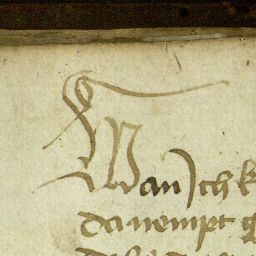 Wan ich k
da nempt g